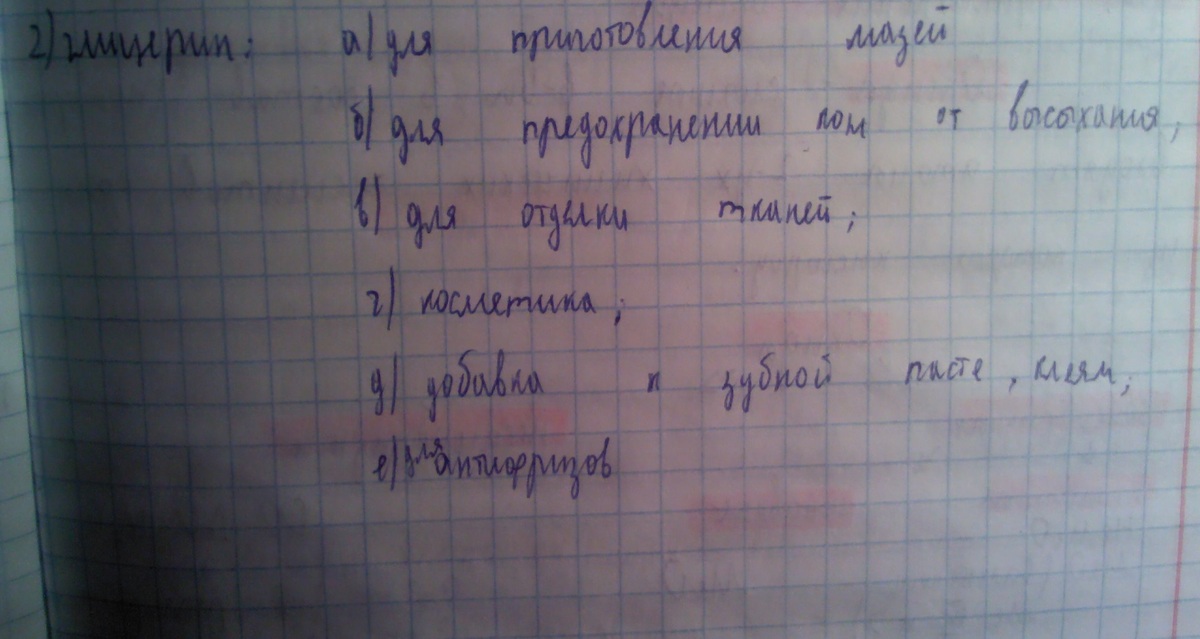 2) глицерин: а) для приготовления мазей
б) для предохранении кож от высыхания;
в) для отделки тканей;
г) косметика;
д) добавка к зубной пасте, клеям;
е) для антифризов